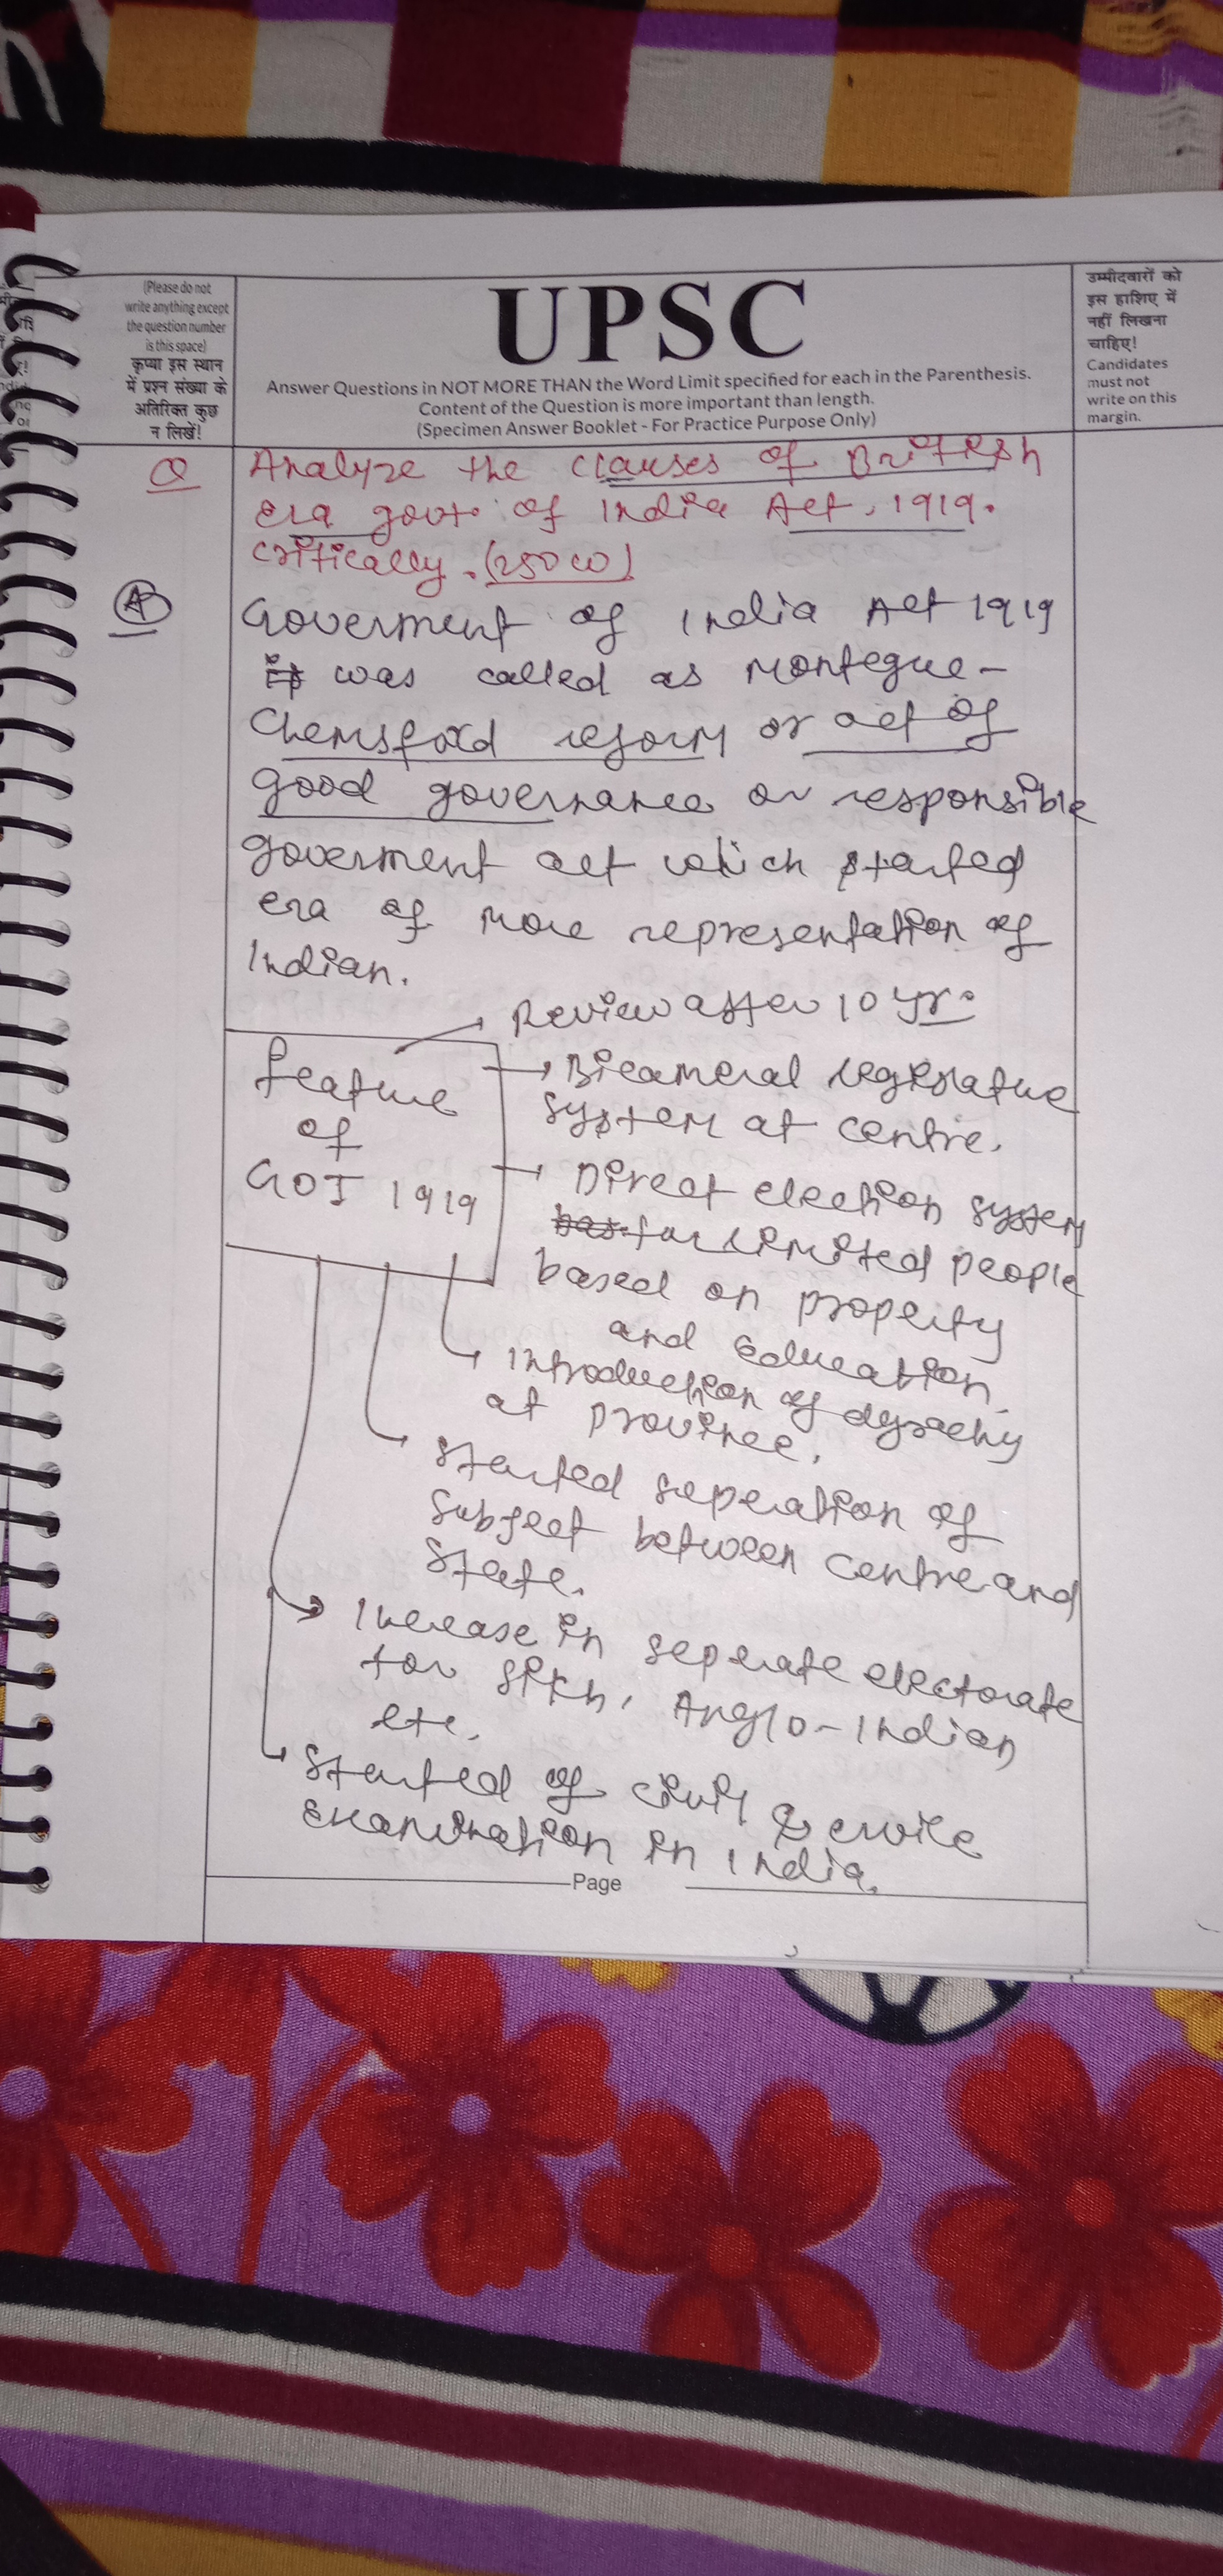 (Please do not
write anything except
the question number
is this space)
कृप्या इस स्थान
में प्रश्न संख्या के
अतिरिक्त कुछ
न लिखें!
UPSC
Answer Questions in NOT MORE THAN the Word Limit specified for each in the Parenthesis.
Content of the Question is more important than length.
(Specimen Answer Booklet - For Practice Purpose Only)
उम्मीदवारों को
इस हाशिए में
नहीं लिखना
चाहिए!
Candidates
must not
write on this
margin.
Q Analyze the clauses of British
era govt. of India Act, 1919.
critically. (250 w)
A Goverment of India Act 1919
it was called as Montegue-
Chemsford reform or act of
good governance or responsible
goverment act which started
era of more representation of
Indian.
Feature
of
GOI 1919
Review after 10 yr.
Bicameral legislature
system at centre.
Direct election system
has for limited people
based on property
and Education.
Introduction of dyrachy
at province.
Started seperation of
subject between centre and
state.
Increase in seperate electorate
for Sikh, Anglo-Indian
etc.
Started of civil service
examination in India.
Page